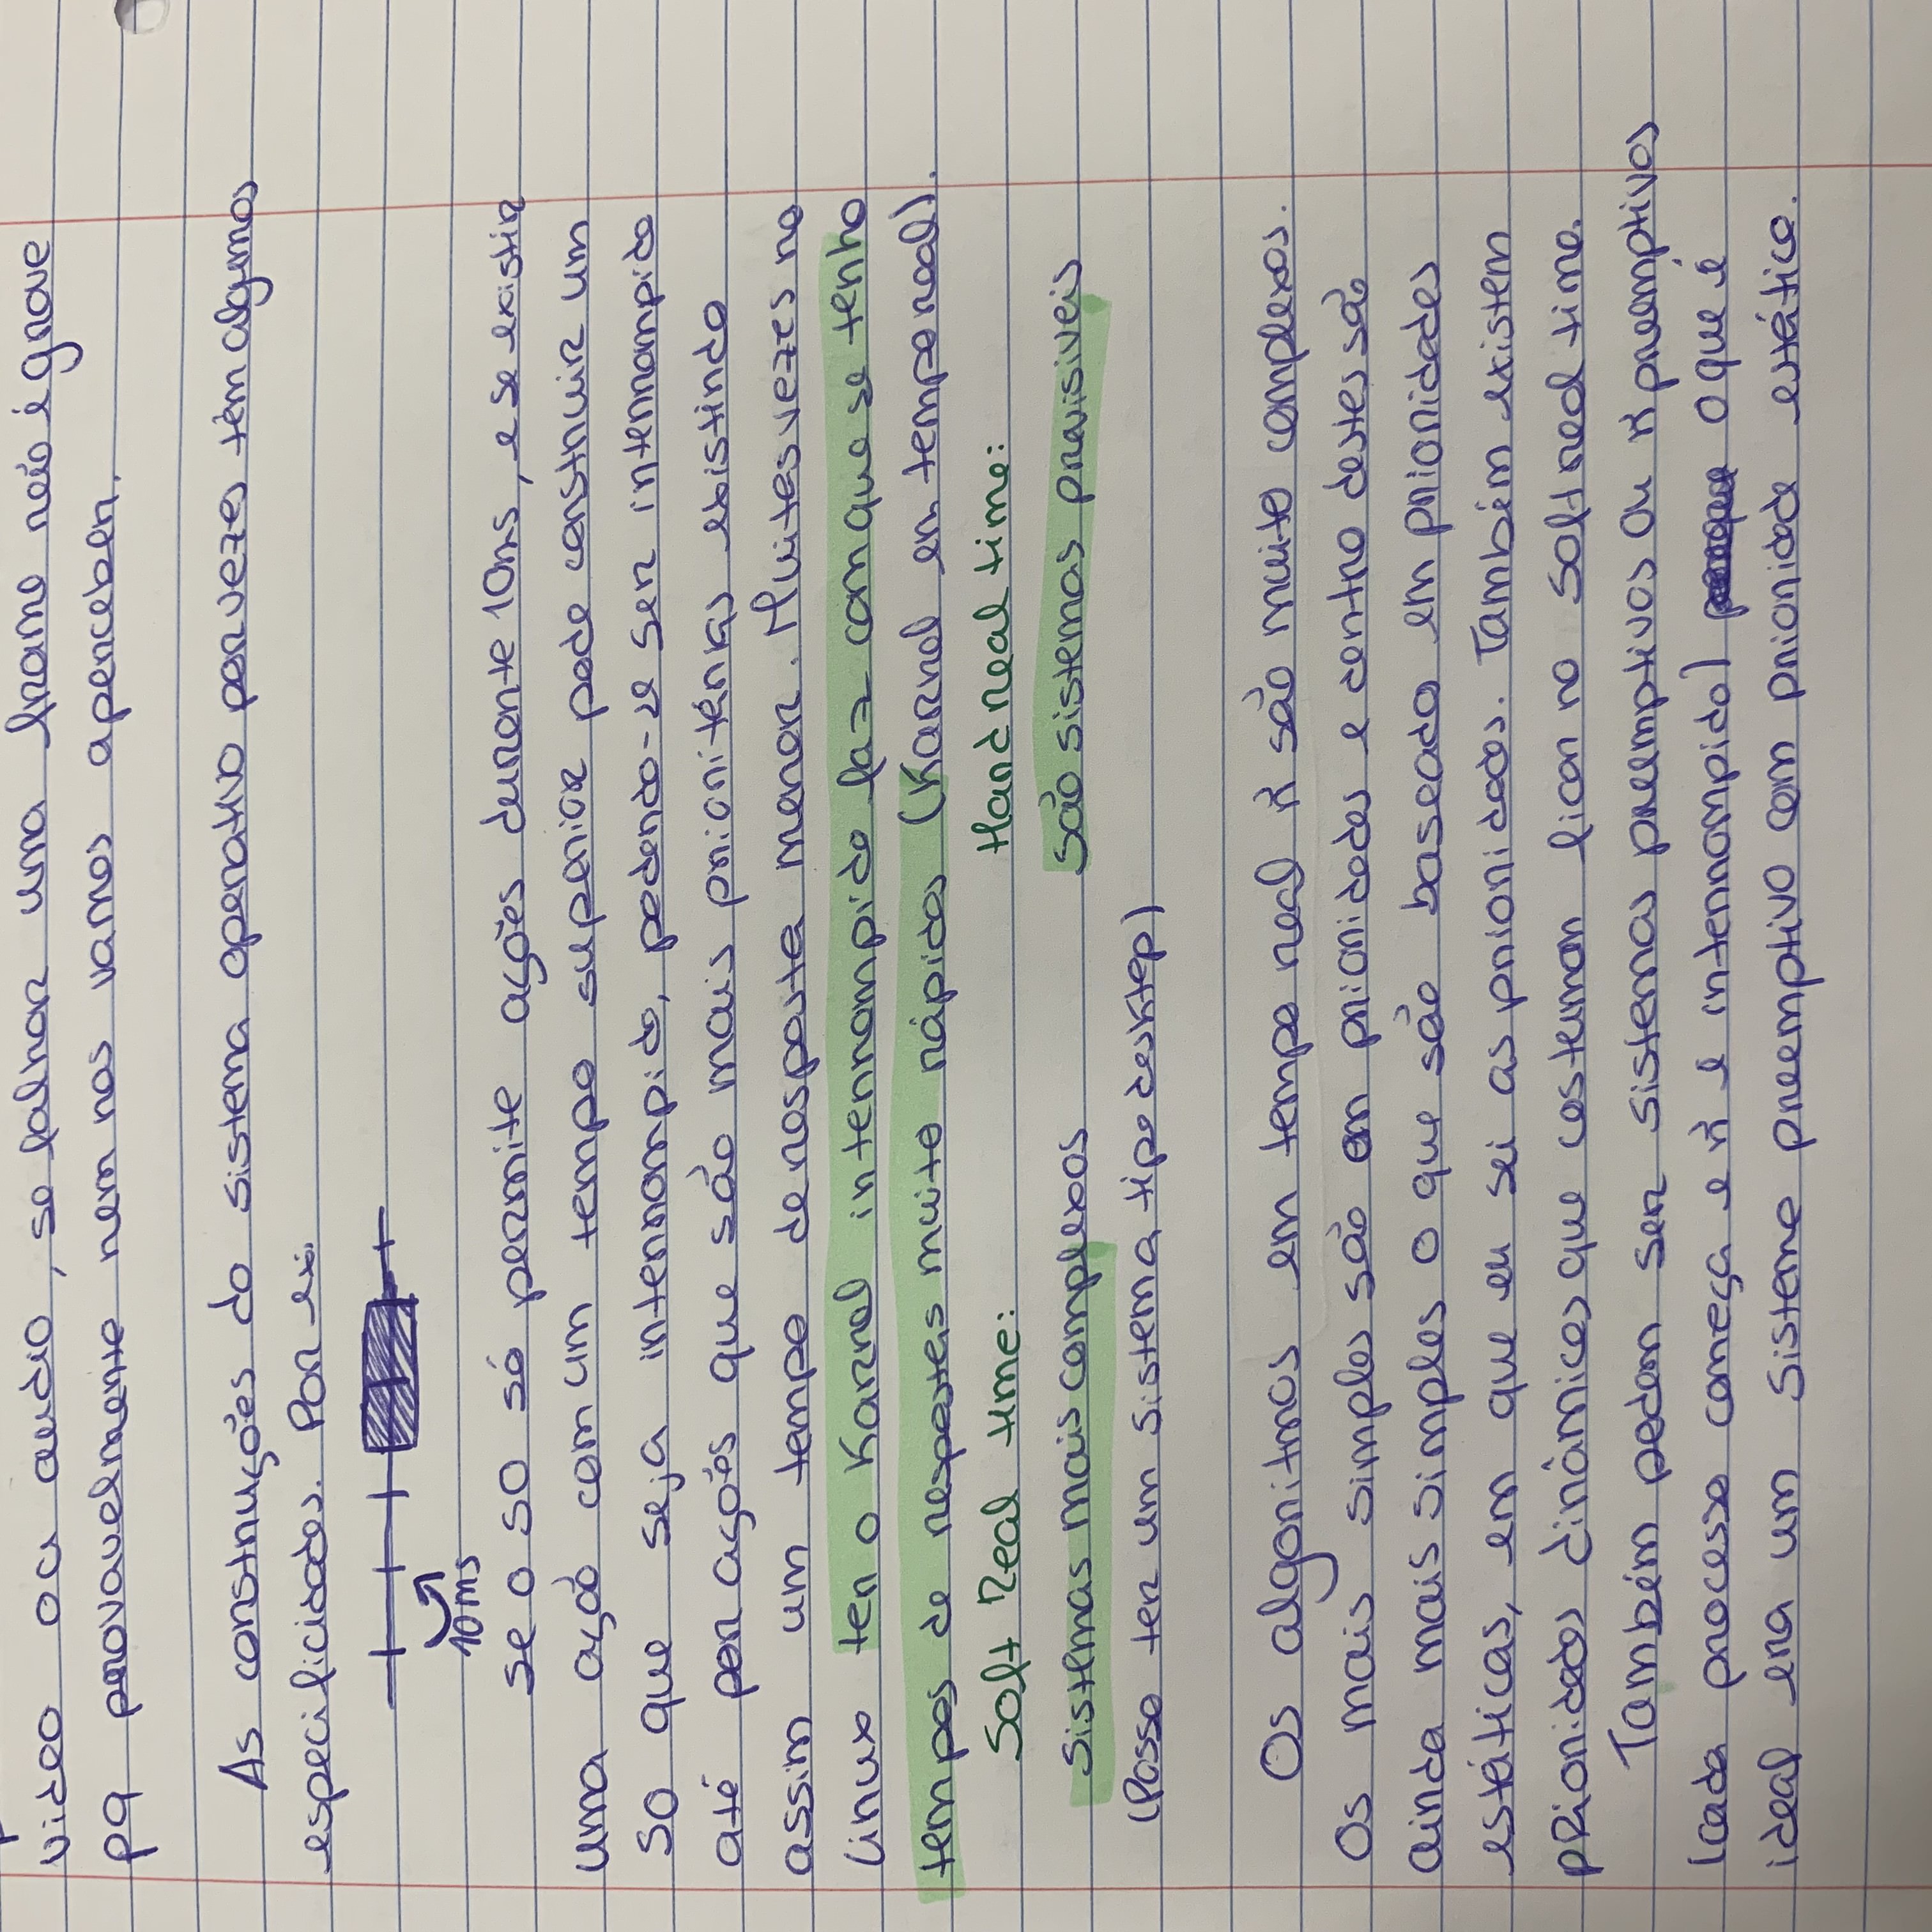 video ou audio, se falhar uma frame não é grave
pq provavelmente nem nos vamos aperceber.
As construções do sistema operativo por vezes têm algumas
especificidades. Por ex:
10ms
se o SO só permite ações durante 10ms, e se existir
uma ação com um tempo superior pode construir um
SO que seja interrompido, podendo-se ser interrompido
até por ações que são mais prioritárias existindo
assim um tempo de resposta menor. Muitas vezes no
linux ter o Karnel interrompido faz com que se tenha
tempos de respostas muito rápidos (Karnel em tempo real).
Soft Real time: Hard real time:
sistemas mais complexos são sistemas previsiveis
(Posso ter um sistema tipo desktop)
Os algoritmos em tempo real ñ são muito complexos.
Os mais simples são em prioridades e dentro destes são
ainda mais simples o que são baseado em prioridades
estáticas, em que eu sei as prioridades. Também existem
prioridades dinâmicas que costumam ficar no soft real time.
Também podem ser sistemas preemptivos ou ñ preemptivos
(cada processo começa e ñ é interrompido) o que é
ideal era um sistema preemptivo com prioridade estática.